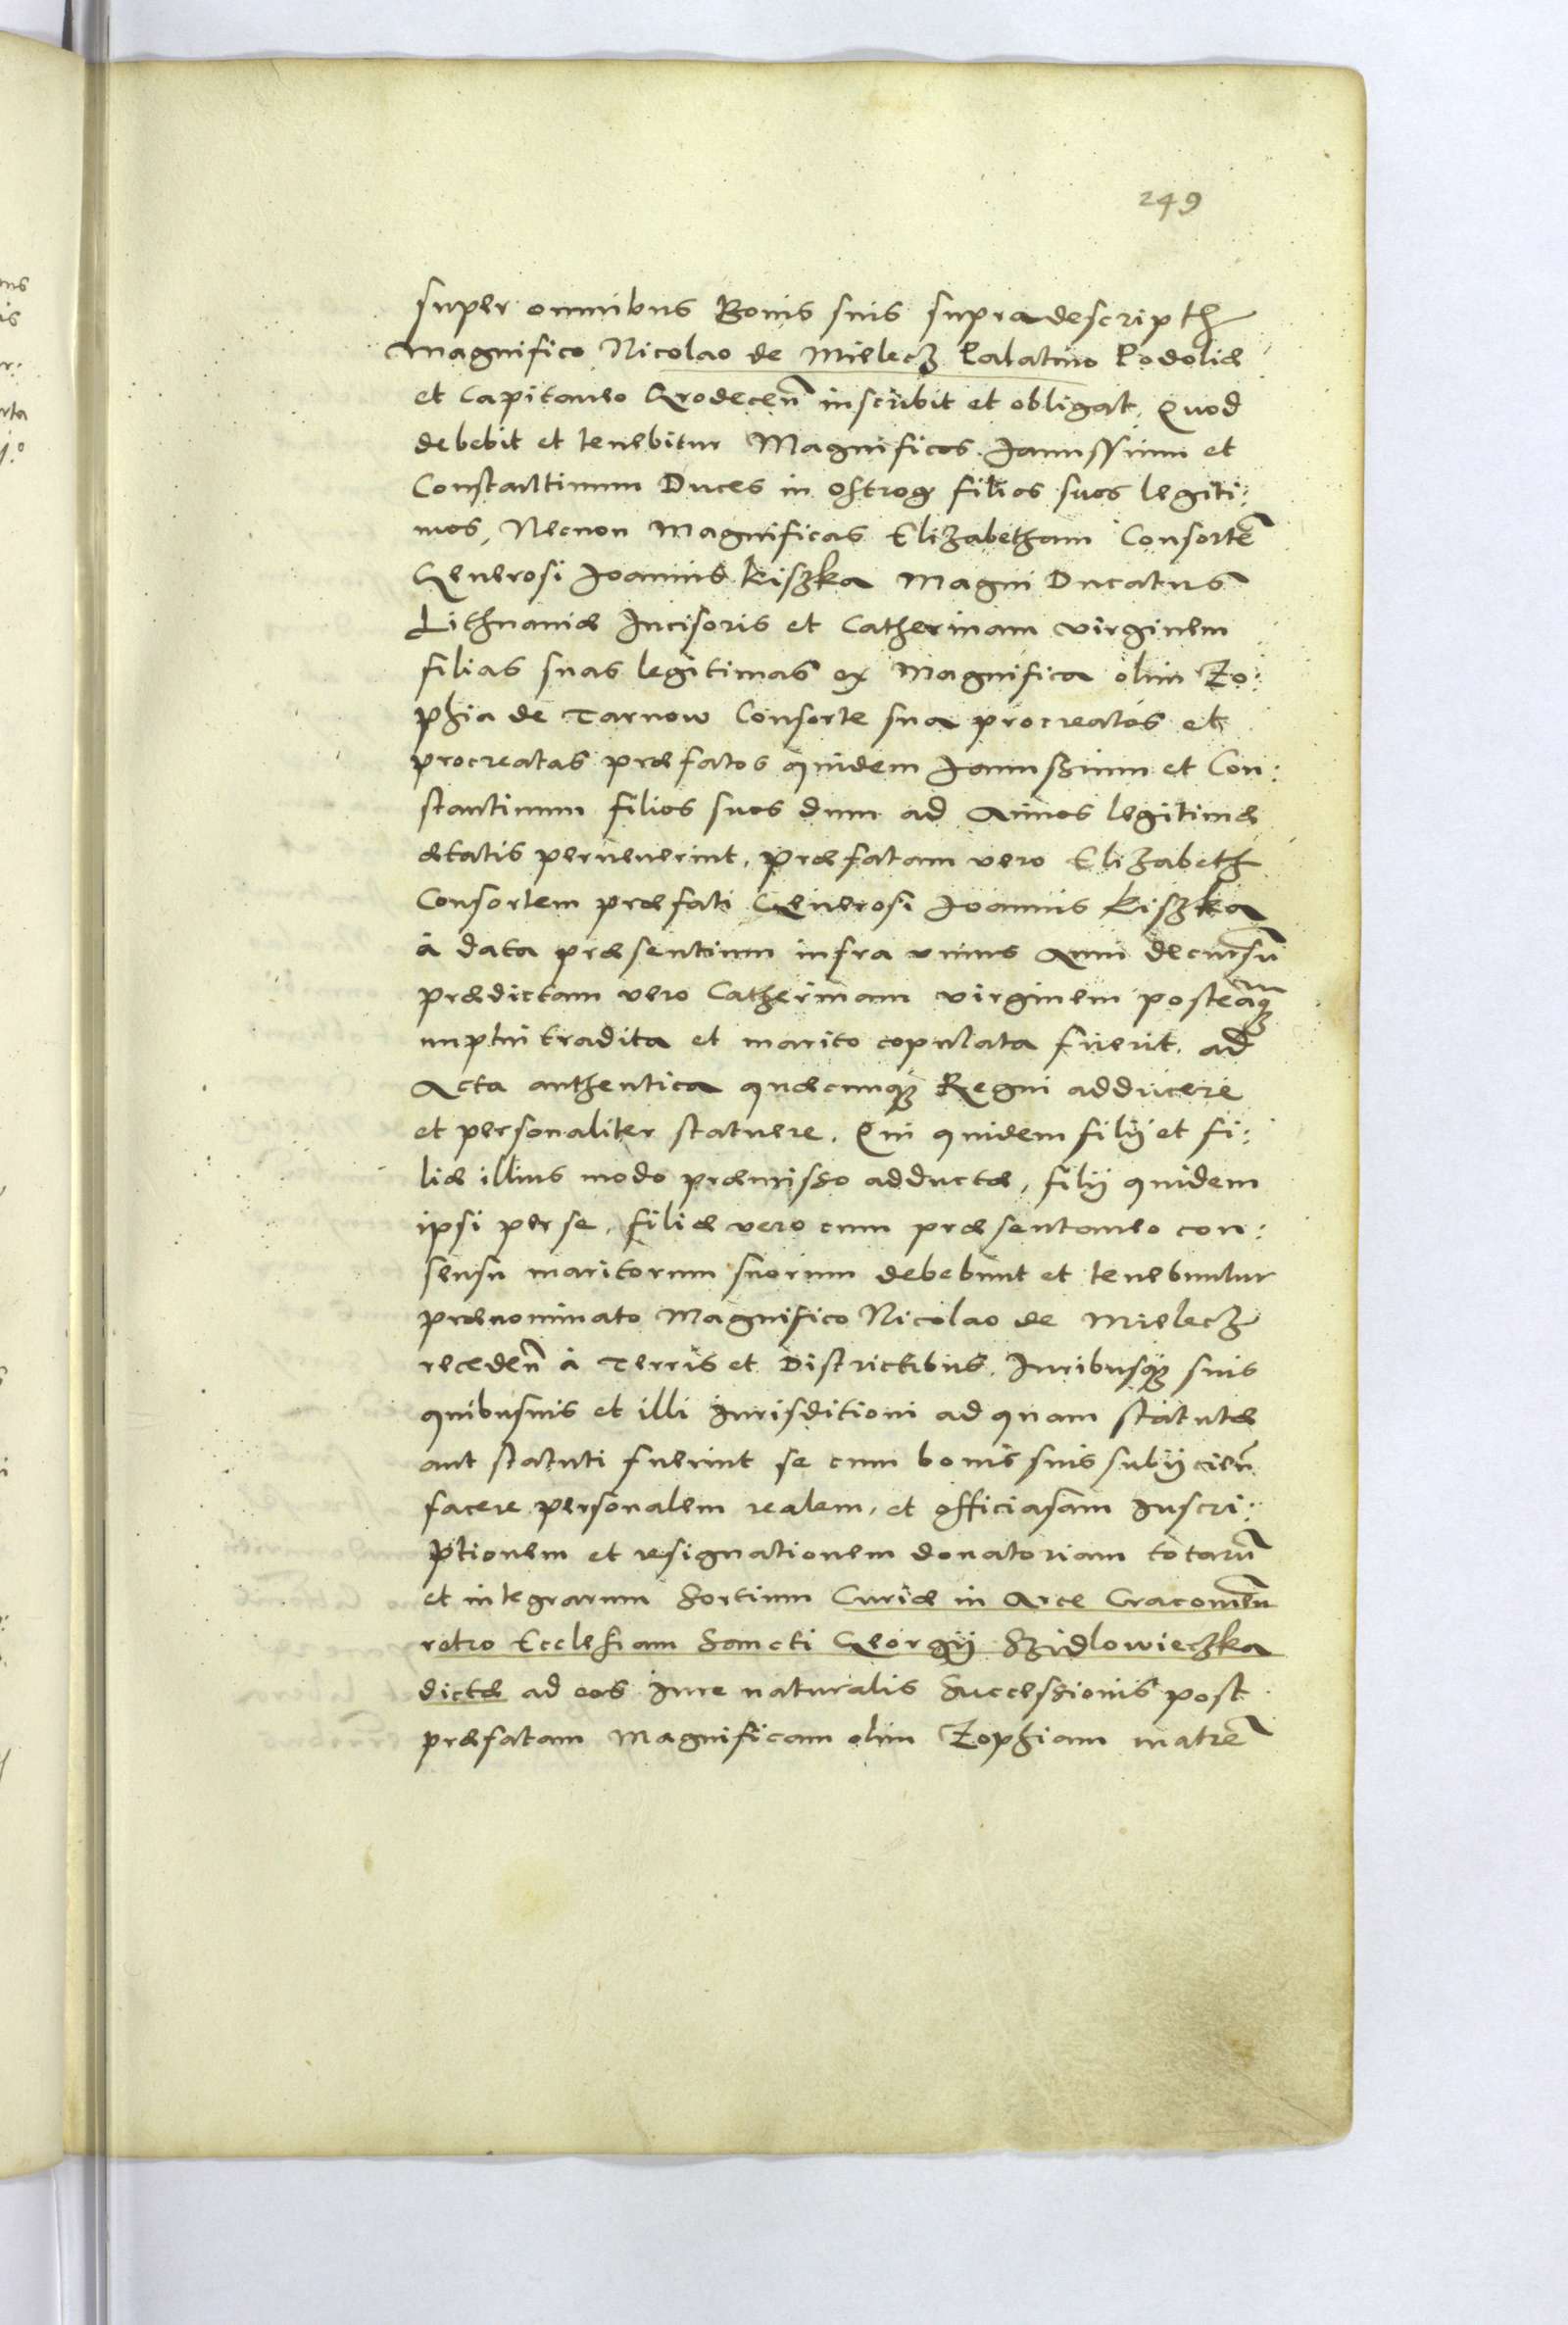 249
super omnibus Bonis suis supradescripth
Magnifico Nicolao de Mielecz Palatino Podoliæ
et Capitaneo Grodecen̄ inscribit et obligat, Quod
debebit et tenebitur Magnificos Janussium et
Constantinum Duces in Ostrog filios suos legiti:
mos, Necnon Magnificas Elizabetham Consortē
Generosi Joannis Kiszka Magni Ducatus
Lithuaniæ Incisoris et Catherinam virginem
filias suas legitimas ex Magnifica olim Zo:
phia de Tarnow Consorte sua procreatos et
procreatas præfatos quidem Janussium et Con:
stantinum filios suos dum ad Annos legitimæ
ætatis peruenerint, præfatam vero Elizabeth
Consortem præfati Generosi Joannis Kiszka
à data præsentium infra unius Anni decursū
prædictam vero Catherinam virginem posteaq̃
nuptui tradita et marito copulata fuerit, ad
Acta authentica quæcunq3 Regni adducere
et personaliter statuere. Qui quidem filij et fi:
liæ illius modo præmisso adductæ, filij quidem
ipsi per se, filiæ vero cum præsentaneo con:
sensu maritorum suorum debebunt et tenebuntur
prænominato Magnifico Nicolao de Mielecz
receden̄ à Terris et Districtibus, Iuribusq3 suis
quibusuis et illi Jurisditioni ad quam statutæ
aut statuti fuerint se cum bonis suis subijcien̄
facere personalem realem, et officiasam Inscri:
ptionem et resignationem donatoriam totarū
et integrarum Sortium Curiæ in Arce Cracouien̄
retro Ecclesiam Sancti Georgij Szidlowieczka
dictæ ad eos Jure naturalis Successionis post
præfatam Magnificam olim Zophiam matrē